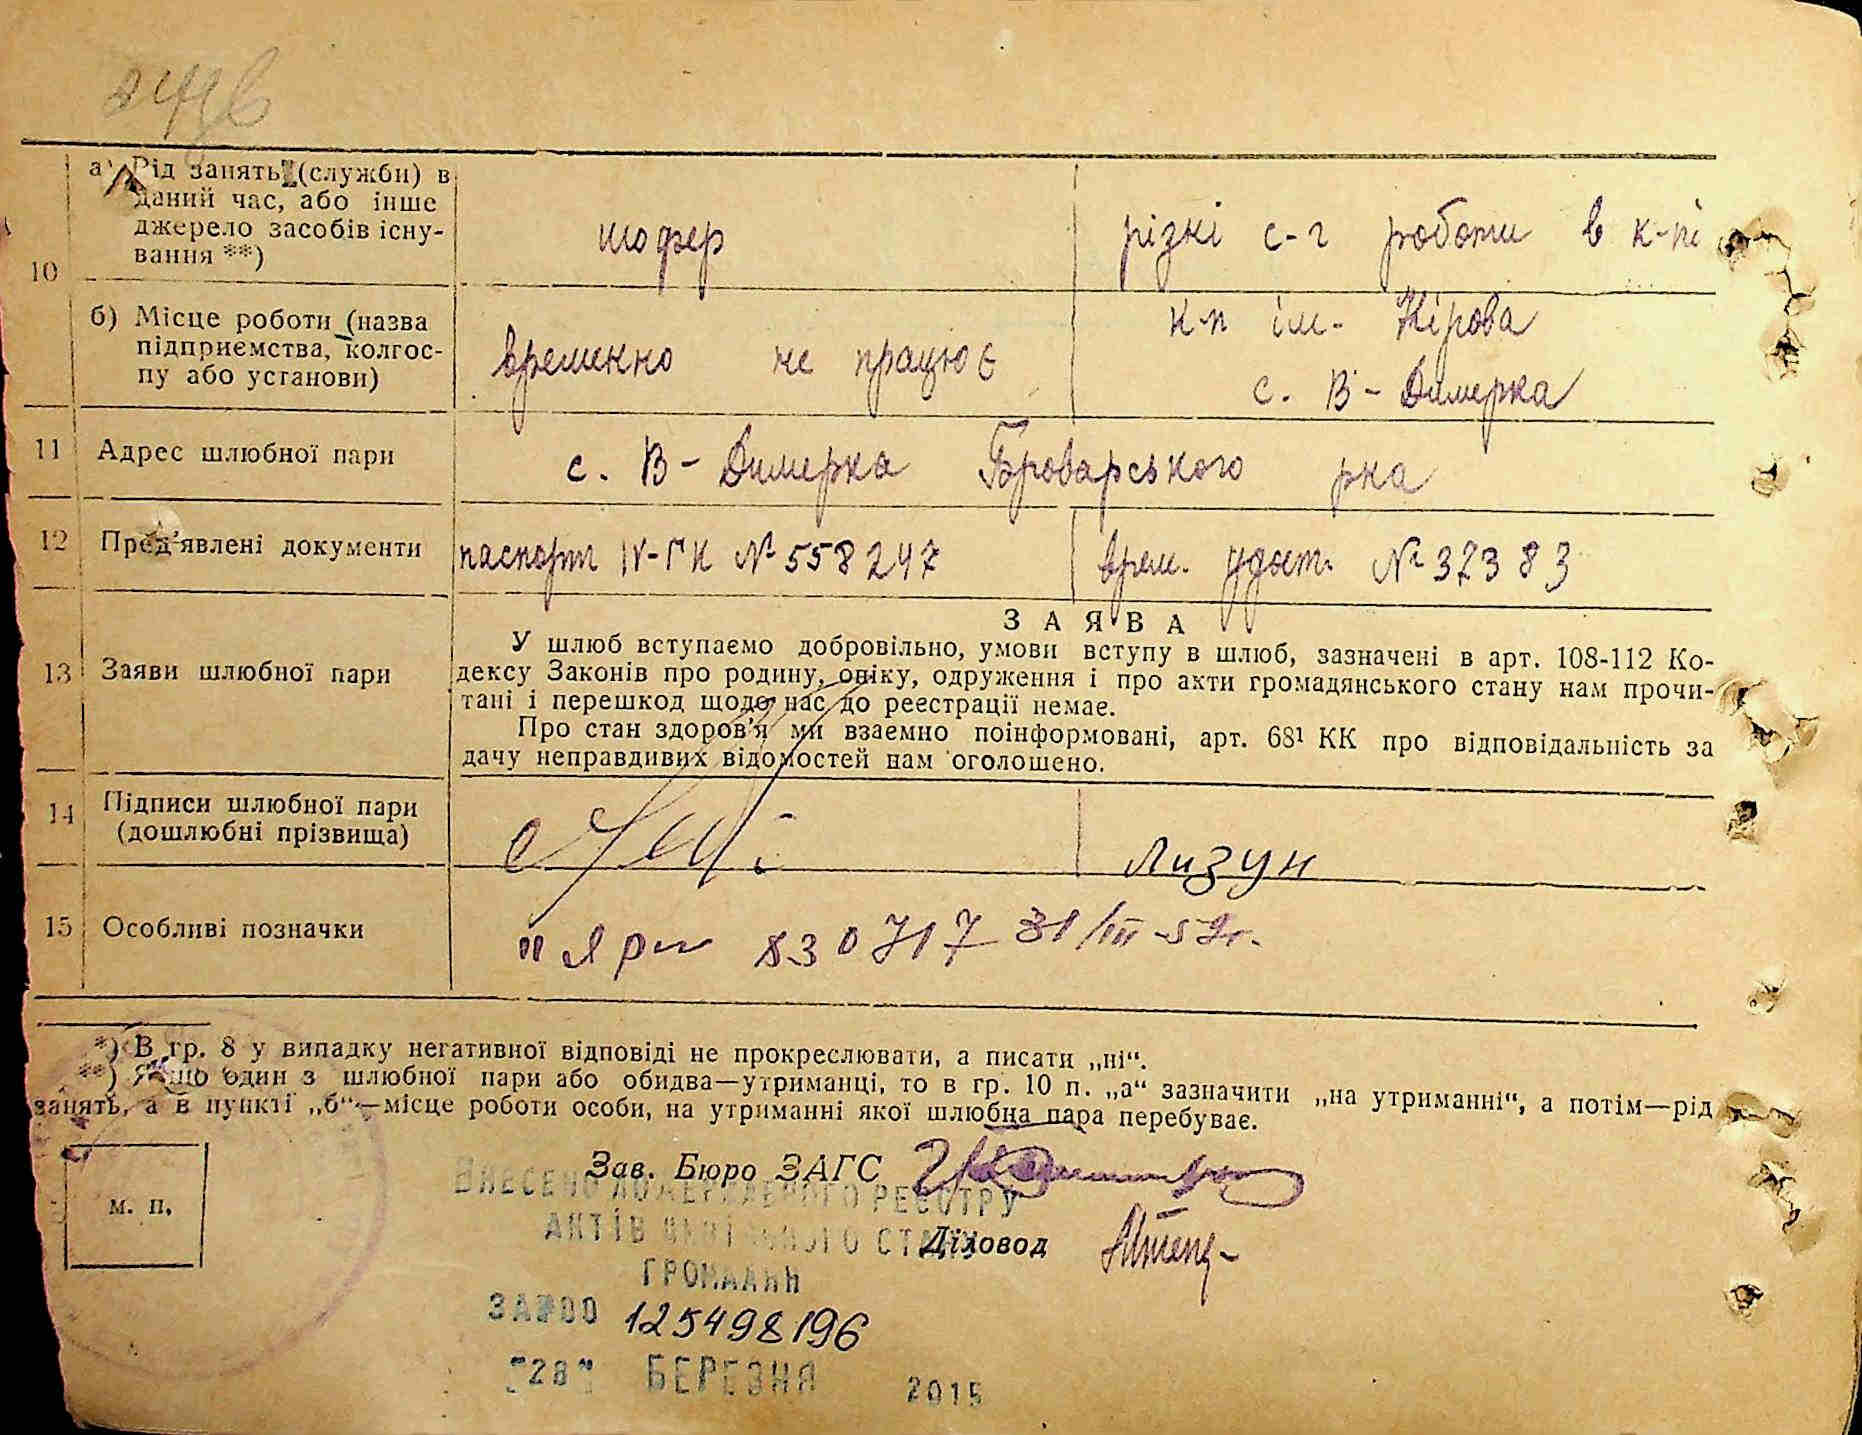 10
а) Рід занять (служби) в
даний час, або інше
джерело засобів існу-
вання **)
шофер
різкі с-г роботи в к-пі
б) Місце роботи (назва
підприємства, колгос-
пу або установи)
временно не працює
к-п ім. Кірова
с. В-Димерка
11 Адрес шлюбної пари
с. В-Димерка Броварського рна
12 Пред'явлені документи
паспорт IV-ГК № 558247
врем. удост. № 37383
13 Заяви шлюбної пари
ЗАЯВА
У шлюб вступаємо добровільно, умови вступу в шлюб, зазначені в арт. 108-112 Ко-
дексу Законів про родину, опіку, одруження і про акти громадянського стану нам прочи-
тані і перешкод щодо нас до реєстрації немає.
Про стан здоров'я ми взаємно поінформовані, арт. 68¹ КК про відповідальність за
дачу неправдивих відомостей нам оголошено.
14 Підписи шлюбної пари
(дошлюбні прізвища)
Лизун
15 Особливі позначки
830717 31/III-59г.
*) В гр. 8 у випадку негативної відповіді не прокреслювати, а писати „ні“.
**) Якщо один з шлюбної пари або обидва—утриманці, то в гр. 10 п. „а“ зазначити „на утриманні“, а потім—рід
занять, а в пункті „б“—місце роботи особи, на утриманні якої шлюбна пара перебуває.
Зав. Бюро ЗАГС
м. п.
Діловод
ВНЕСЕНО ДО ДЕРЖАВНОГО РЕЄСТРУ
АКТІВ ЦИВІЛЬНОГО СТАНУ
ГРОМАДЯН
ЗА №00 125498196
"28" БЕРЕЗНЯ 2015